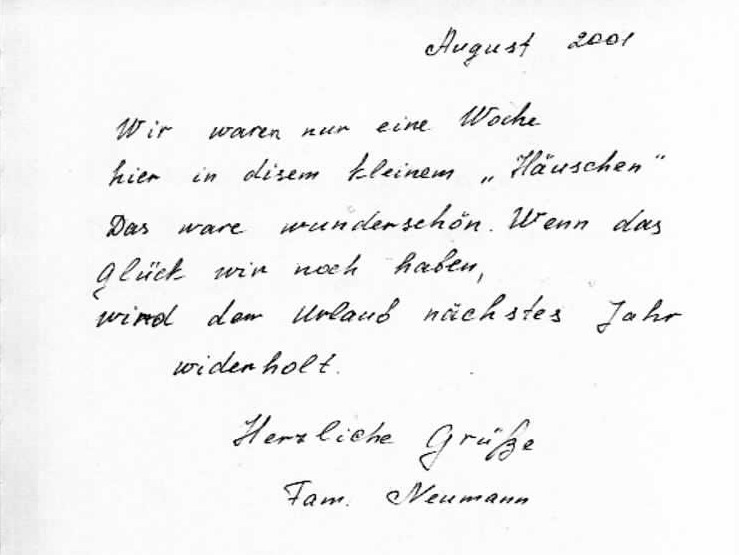 August 2001
Wir waren nur eine Woche
hier in disem kleinem „Häuschen“
Das ware wunderschön. Wenn das
Glück wir noch haben,
wird der Urlaub nächstes Jahr
widerholt.
Herzliche Grüße
Fam. Neumann